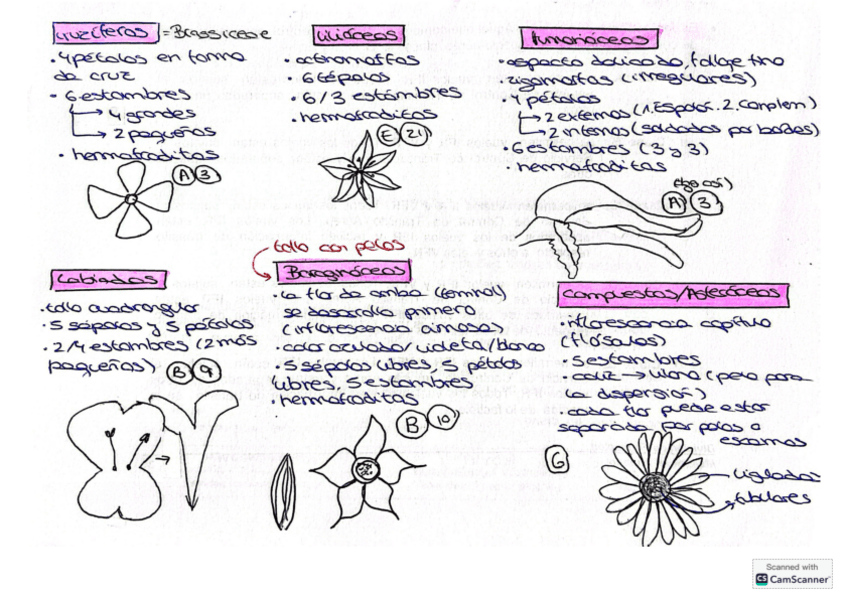 Crucíferas = Brassicaceae
• 4 pétalos en forma
de cruz
• 6 estambres
→ 4 grandes
→ 2 pequeños
• hermafroditas
A 3
Liliáceas
• actinomorfas
• 6 tépalos
• 6/3 estambres
• hermafroditas
E 21
Fumariáceas
• aspecto delicado, follaje fino
• zigomorfas (irregulares)
• 4 pétalos
→ 2 externos (1. Espolon. 2. Complem)
→ 2 internos (soldados por bordes)
• 6 estambres (3 y 3)
• hermafroditas
A 3
Labiadas
• tallo cuadrangular
• 5 sépalos y 5 pétalos
• 2/4 estambres (2 más
pequeños)
B 9
tallo con pelos
Boragináceas
• la flor de arriba (terminal)
se desarrolla primero
(inflorescencia cimosa)
• color azulado/violeta/blanco
• 5 sépalos libres, 5 pétalos
libres, 5 estambres
• hermafroditas
B 10
Compuestas/Asteráceas
• inflorescencia capítulo
(flósculos)
• 5 estambres
• cáliz → vilano (pelo para
la dispersión)
• cada flor puede estar
separada por pelos o
escamas
G
liguladas
tubulares
Scanned with
CS CamScanner